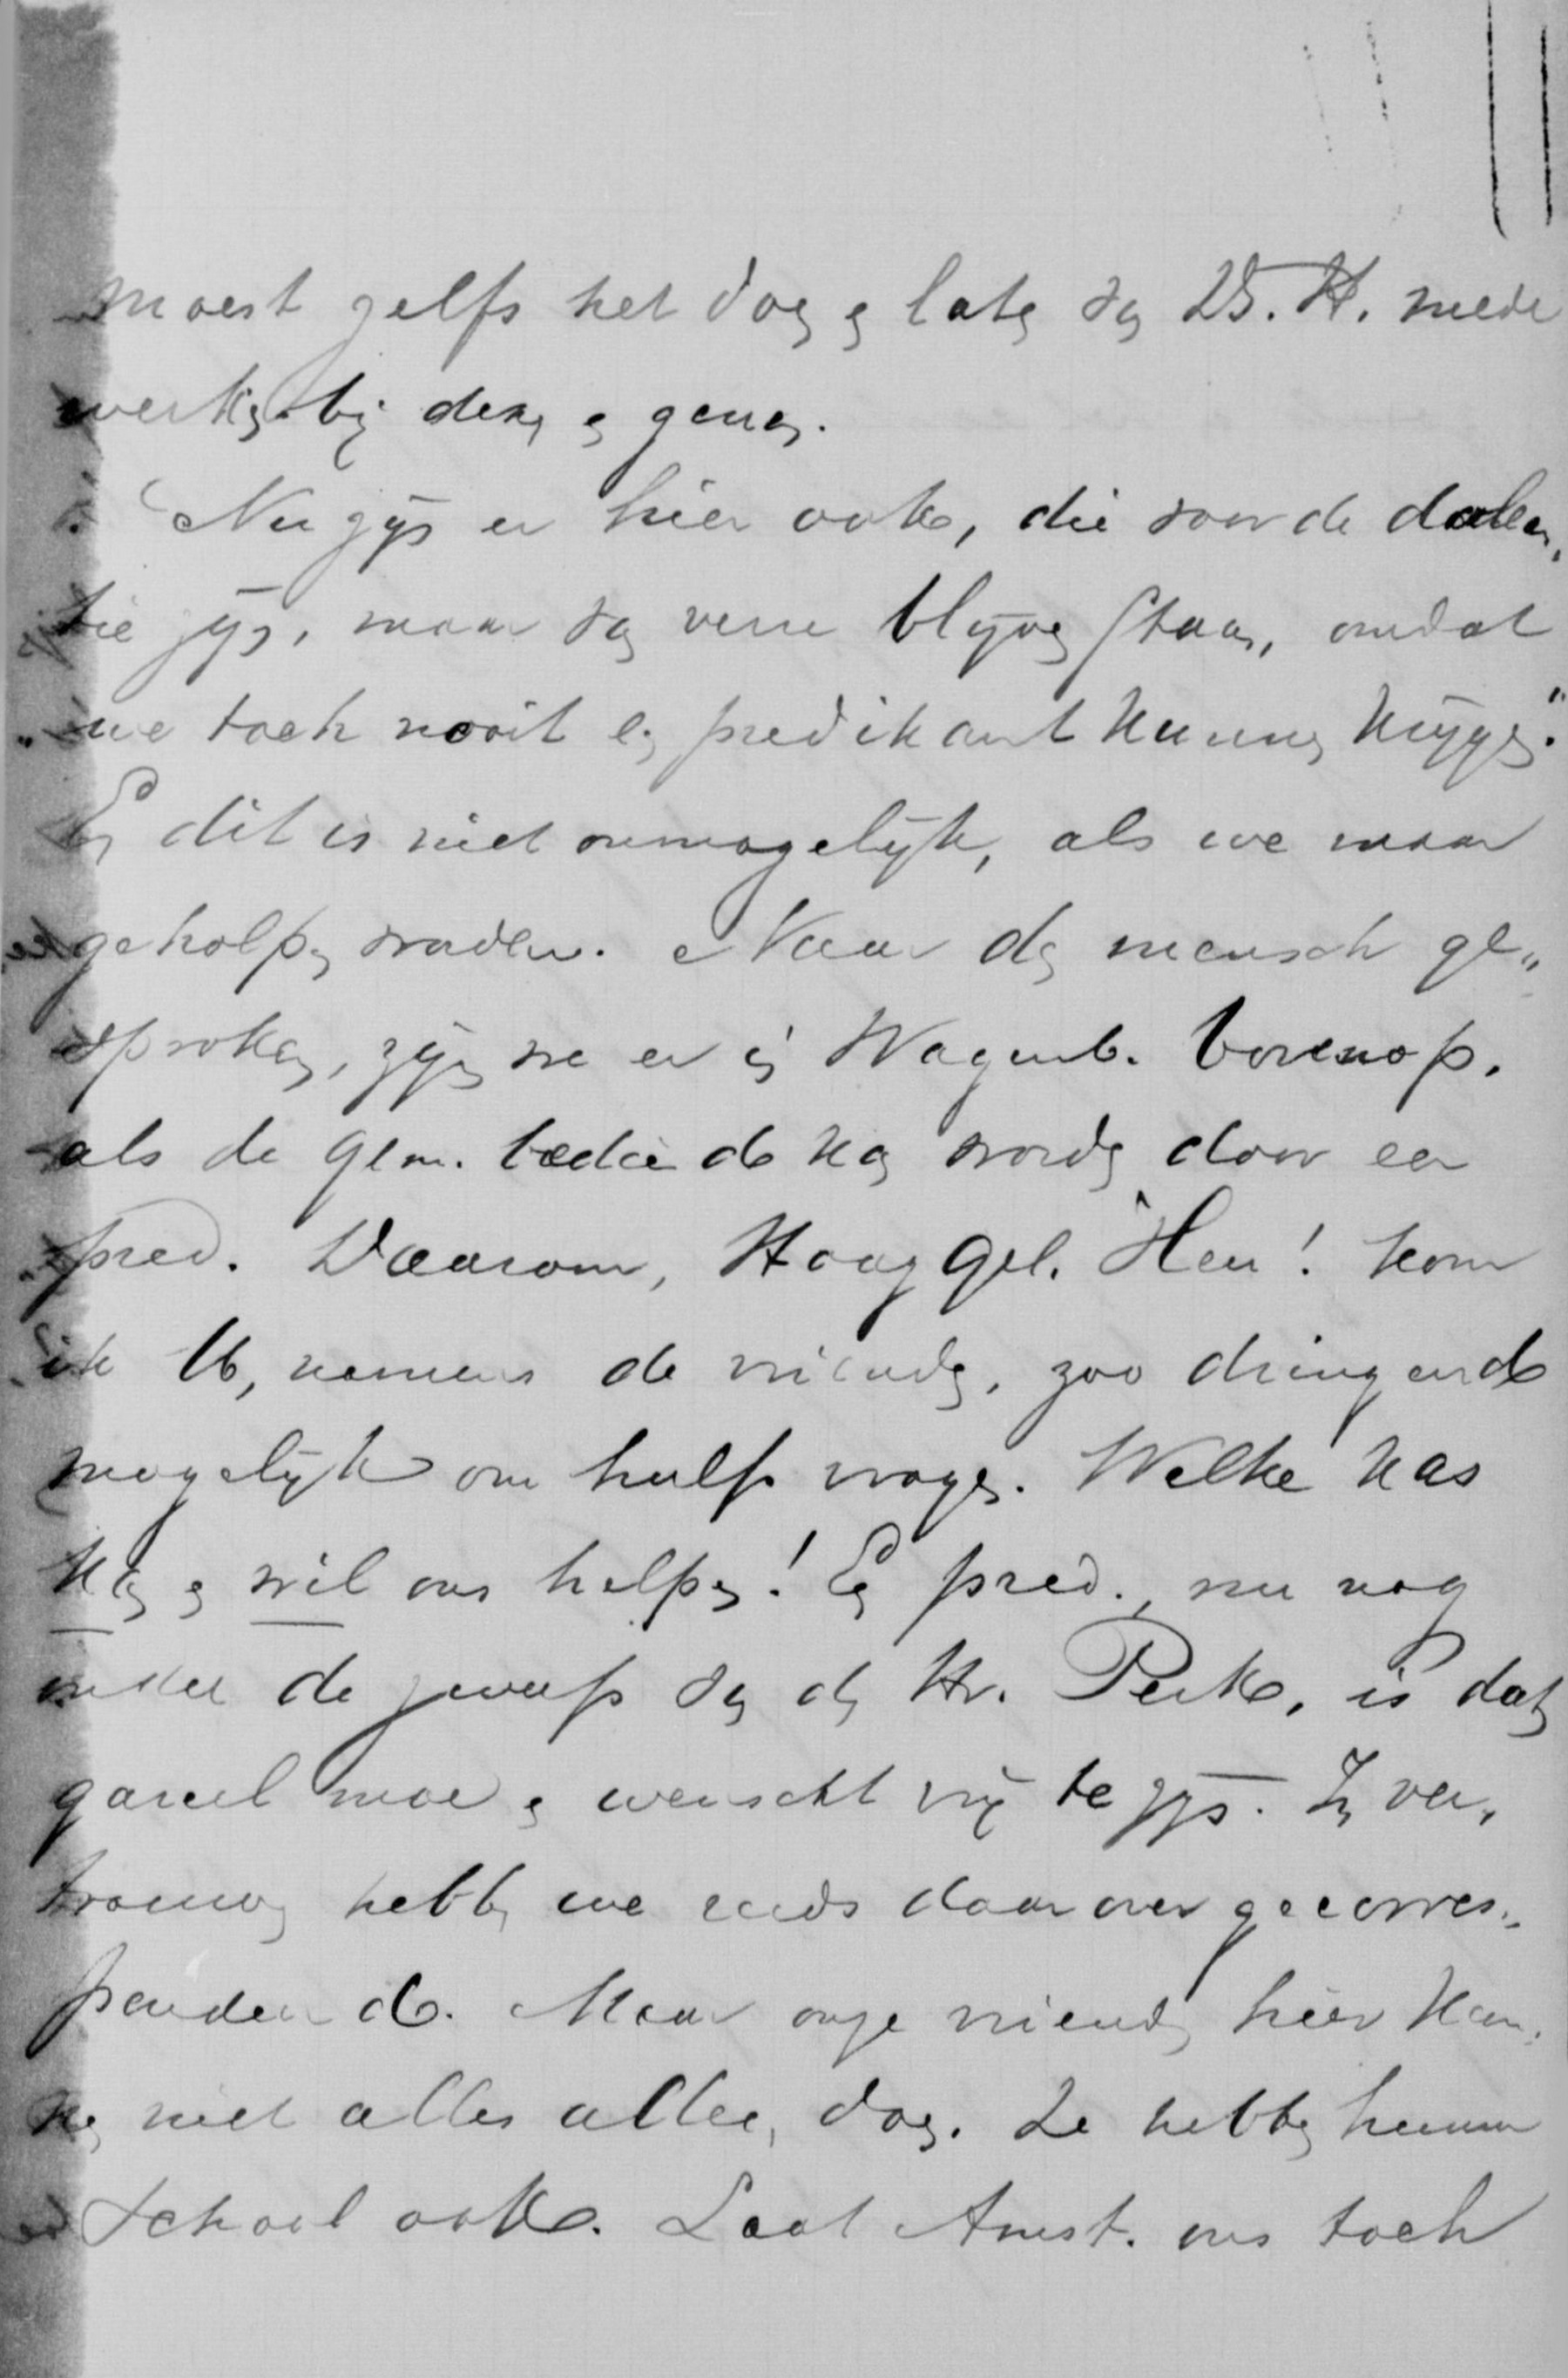 moest zelfs het doen en laten van D. H. mede
werken bij dezen en genen.
Nu zijn er hier ook, die voor de dolean„
tie zijn, maar van verre blijven staan, omdat
"we toch nooit een predikant kunnen krijgen."
En dit is niet onmogelijk, als we maar
geholpen worden. Naar den mensch ge„
sproken, zijn we er in Wagenb. bovenop,
als de gem. bediend kan worden door een
pred. Daarom, Hoog gel. Heer! kom
ik U, namens de vrienden, zoo dringend
mogelijk om hulp vragen. Welke kas
kan en wil ons helpen! Een pred., nu nog
onder de zweep van den Hr. Perk, is dat
gareel moe en wenscht vrij te zijn. In ver„
trouwen hebben we reeds daarover gecorres„
pondeerd. Maar onze vrienden hier kun„
nen niet alles alleen doen. Ze hebben hunne
school ook. Laat Amst. ons toch